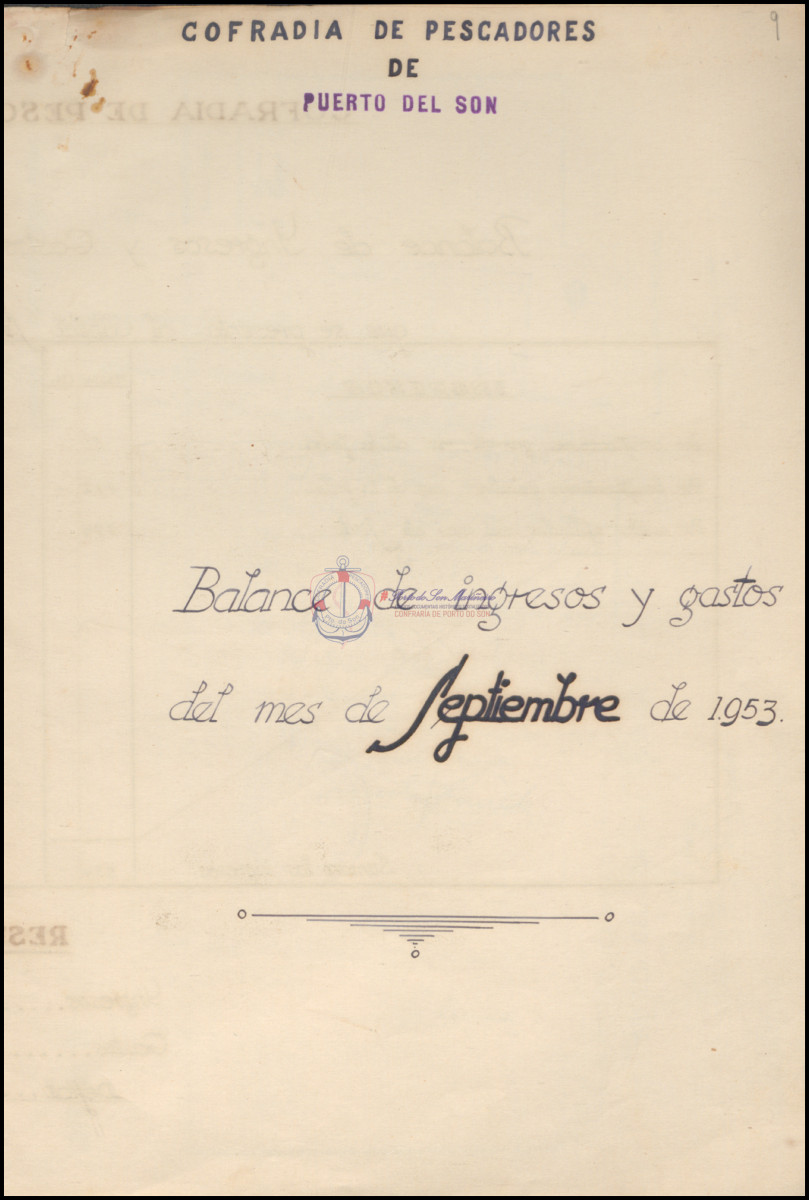 9
COFRADIA DE PESCADORES
DE
PUERTO DEL SON
Balance de ingresos y gastos
CONFRARÍA DE PORTO DO SON
del mes de Septiembre de 1.953.